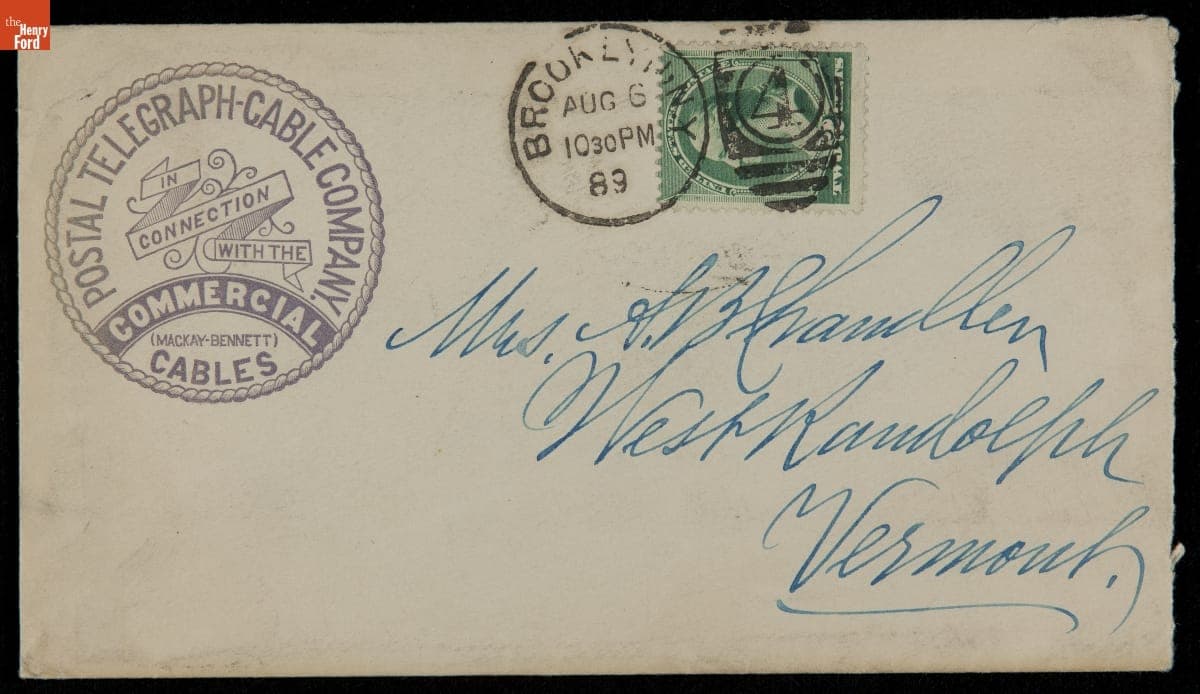 the
Henry
Ford
POSTAL TELEGRAPH-CABLE COMPANY,
IN
CONNECTION
WITH THE
COMMERCIAL
(MACKAY-BENNETT)
CABLES
BROOKLYN N.Y.
AUG 6
1030PM
89
4
Mrs. A. B. Chandler
West Randolph
Vermont.